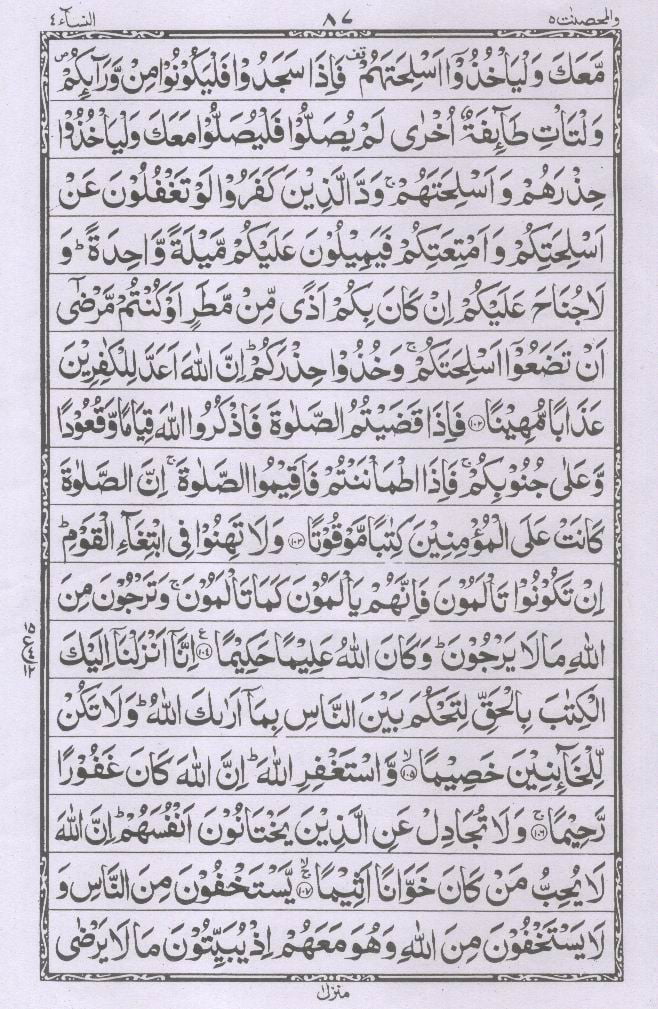 والمحصنت ٥ ٨٧ النسآء ٤
مَّعَكَ وَلْيَاْخُذُوْۤا اَسْلِحَتَهُمْ ۫ قف فَاِذَا سَجَدُوْا فَلْيَكُوْنُوْا مِنْ وَّرَآىِٕكُمْ ۪ ص
وَلْتَاْتِ طَآىِٕفَةٌ اُخْرٰى لَمْ يُصَلُّوْا فَلْيُصَلُّوْا مَعَكَ وَلْيَاْخُذُوْا
حِذْرَهُمْ وَ اَسْلِحَتَهُمْ ۚ وَدَّ الَّذِيْنَ كَفَرُوْا لَوْ تَغْفُلُوْنَ عَنْ
اَسْلِحَتِكُمْ وَ اَمْتِعَتِكُمْ فَيَمِيْلُوْنَ عَلَيْكُمْ مَّيْلَةً وَّاحِدَةً ؕ وَ
لَا جُنَاحَ عَلَيْكُمْ اِنْ كَانَ بِكُمْ اَذًى مِّنْ مَّطَرٍ اَوْ كُنْتُمْ مَّرْضٰۤى
اَنْ تَضَعُوْۤا اَسْلِحَتَكُمْ ۚ وَخُذُوْا حِذْرَكُمْ ؕ اِنَّ اللّٰهَ اَعَدَّ لِلْكٰفِرِيْنَ
عَذَابًا مُّهِيْنًا ۝١٠٢ فَاِذَا قَضَيْتُمُ الصَّلٰوةَ فَاذْكُرُوا اللّٰهَ قِيَامًا وَّقُعُوْدًا
وَّعَلٰى جُنُوْبِكُمْ ۚ فَاِذَا اطْمَاْنَنْتُمْ فَاَقِيْمُوا الصَّلٰوةَ ۚ اِنَّ الصَّلٰوةَ
كَانَتْ عَلَى الْمُؤْمِنِيْنَ كِتٰبًا مَّوْقُوْتًا ۝١٠٣ وَلَا تَهِنُوْا فِى ابْتِغَآءِ الْقَوْمِ ؕ
اِنْ تَكُوْنُوْا تَاْلَمُوْنَ فَاِنَّهُمْ يَاْلَمُوْنَ كَمَا تَاْلَمُوْنَ ۚ وَتَرْجُوْنَ مِنَ
اللّٰهِ مَا لَا يَرْجُوْنَ ؕ وَكَانَ اللّٰهُ عَلِيْمًا حَكِيْمًا ۝١٠٤ ع اِنَّاۤ اَنْزَلْنَاۤ اِلَيْكَ
الْكِتٰبَ بِالْحَقِّ لِتَحْكُمَ بَيْنَ النَّاسِ بِمَاۤ اَرٰىكَ اللّٰهُ ؕ وَلَا تَكُنْ
لِّلْخَآىِٕنِيْنَ خَصِيْمًا ۙ۝١٠٥ وَّاسْتَغْفِرِ اللّٰهَ ؕ اِنَّ اللّٰهَ كَانَ غَفُوْرًا
رَّحِيْمًا ۚ۝١٠٦ وَلَا تُجَادِلْ عَنِ الَّذِيْنَ يَخْتَانُوْنَ اَنْفُسَهُمْ ؕ اِنَّ اللّٰهَ
لَا يُحِبُّ مَنْ كَانَ خَوَّانًا اَثِيْمًا ۚۙ۝١٠٧ يَّسْتَخْفُوْنَ مِنَ النَّاسِ وَ
لَا يَسْتَخْفُوْنَ مِنَ اللّٰهِ وَهُوَ مَعَهُمْ اِذْ يُبَيِّتُوْنَ مَا لَا يَرْضٰى
منزل ١